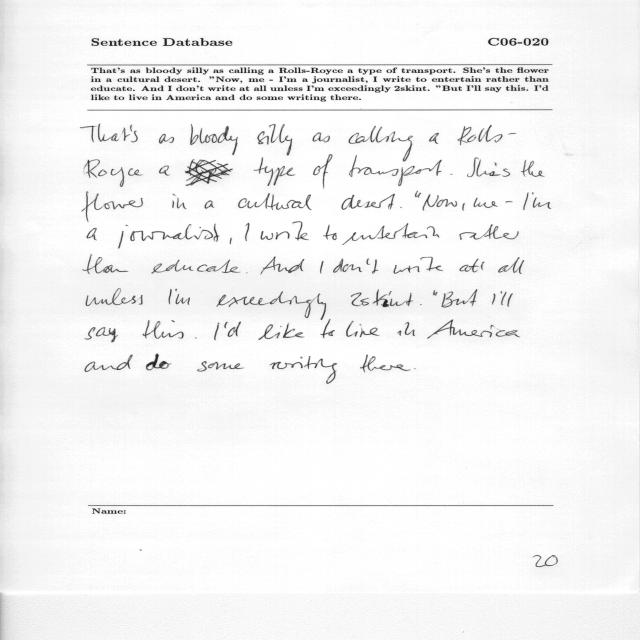 Sentence Database C06-020
That's as bloody silly as calling a Rolls-Royce a type of transport. She's the flower
in a cultural desert. "Now, me - I'm a journalist, I write to entertain rather than
educate. And I don't write at all unless I'm exceedingly 2skint. "But I'll say this. I'd
like to live in America and do some writing there.
That's as bloody silly as calling a Rolls-
Royce a type of transport. She's the
flower in a cultural desert. "Now, me - I'm
a journalist, I write to entertain rather
than educate. And I don't write at all
unless I'm exceedingly 2skint. "But I'll
say this. I'd like to live in America
and do some writing there.
Name:
20